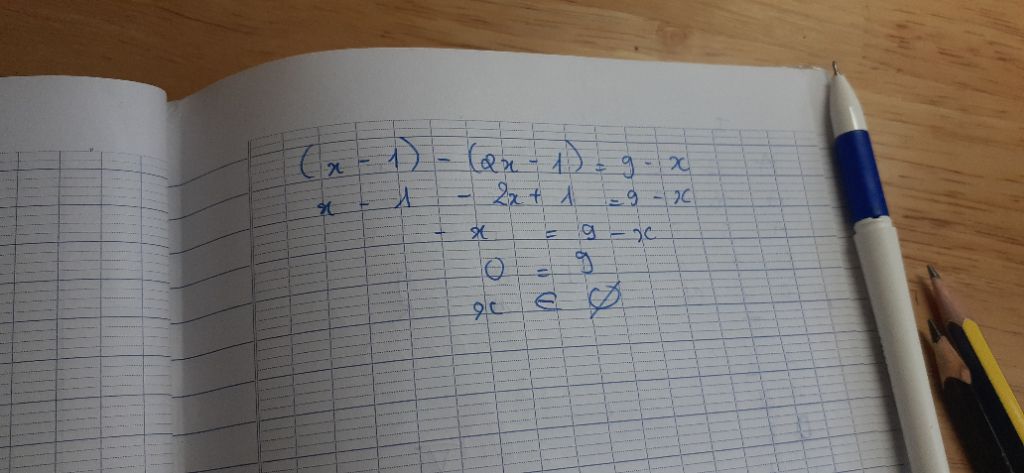 (x - 1) - (2x - 1) = 9 - x
x - 1 - 2x + 1 = 9 - x
- x = 9 - x
0 = 9
x ∈ ∅